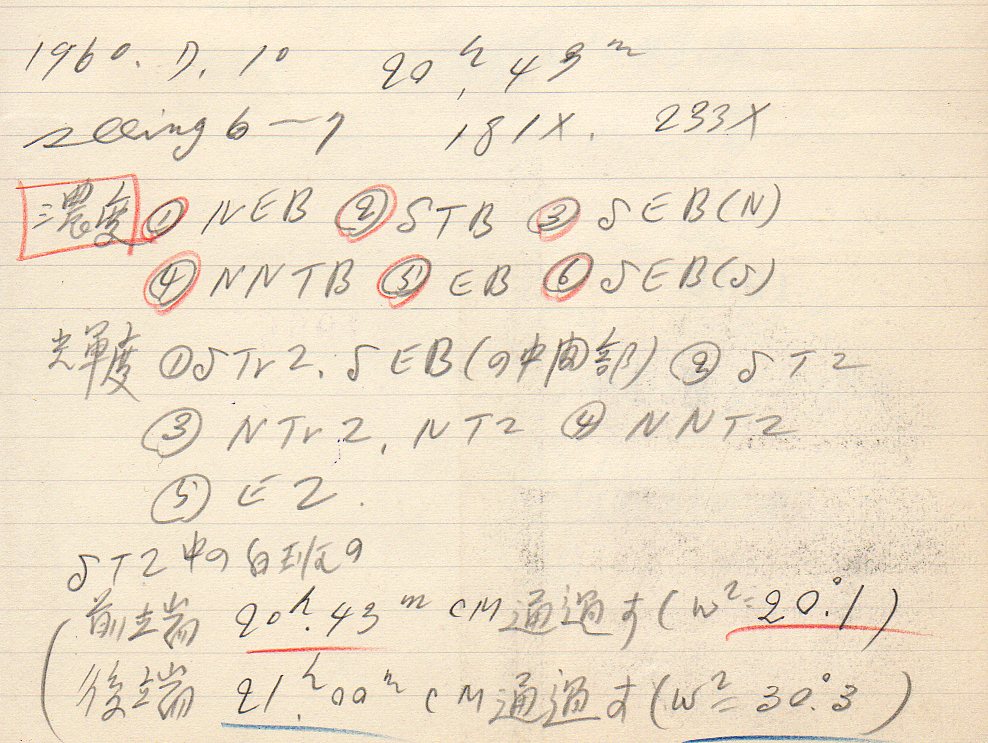 1960. 7. 10 20h 43m
seeing 6-7 181X. 233X
濃度 ① NEB ② STB ③ SEB(N)
④ NNTB ⑤ EB ⑥ SEB(S)
光輝度 ① STrZ. SEB(の中間部) ② STZ
③ NTrZ, NTZ ④ NNTZ
⑤ EZ.
STZ中の白斑の
前端 20h.43m CM通過す(W²=20°.1)
後端 21h.00m CM通過す(W²=30°.3)